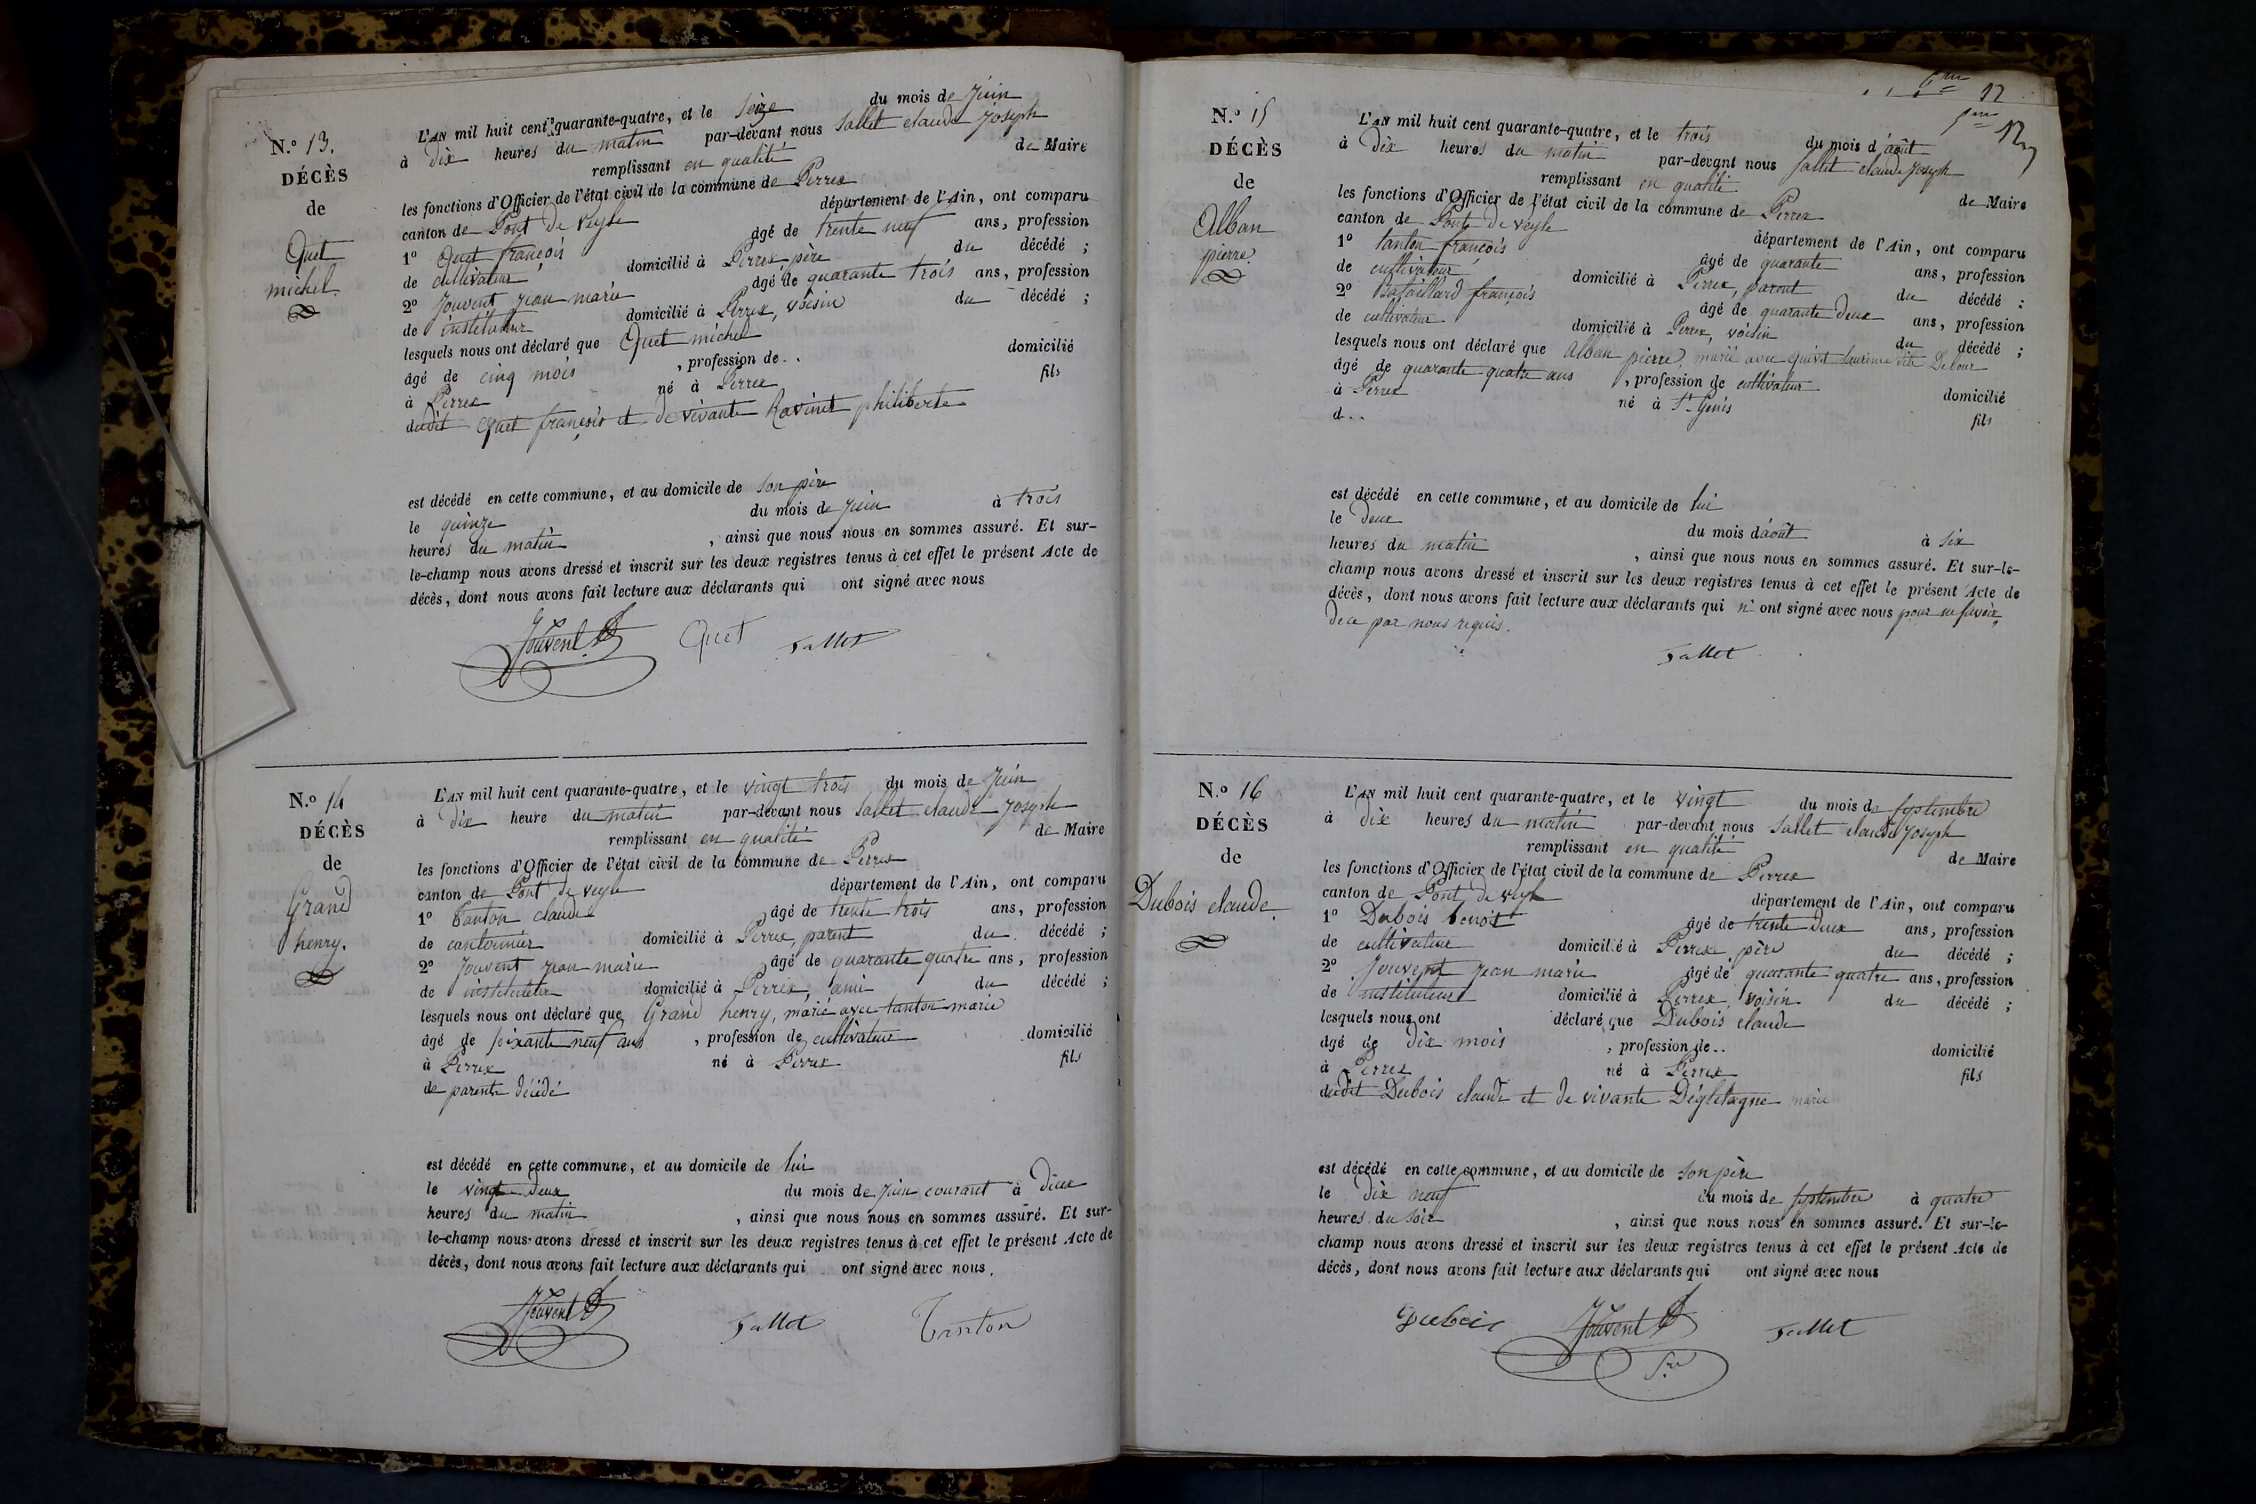 N.º 13.
DÉCÈS
de
Quet
michel
L'AN mil huit cent quarante-quatre, et le seize du mois de Juin
à dix heures du matin par-devant nous Sallet claude Joseph
remplissant en qualité de Maire
les fonctions d'Officier de l'état civil de la commune de Perrex
canton de Pont de veyle département de l'Ain, ont comparu
1º Quet françois âgé de trente neuf ans, profession
de cultivateur domicilié à Perrex père du décédé ;
2º Jouvent jean marie âgé de quarante trois ans, profession
de instituteur domicilié à Perrex, voisin du décédé ;
lesquels nous ont déclaré que Quet michel
âgé de cinq mois , profession de . . domicilié
à Perrex né à Perrex fils
dudit Quet françois et de vivante Ravinet philiberte
est décédé en cette commune, et au domicile de son père
le quinze du mois de juin à trois
heures du matin , ainsi que nous nous en sommes assuré. Et sur-
le-champ nous avons dressé et inscrit sur les deux registres tenus à cet effet le présent Acte de
décès, dont nous avons fait lecture aux déclarants qui ont signé avec nous
Jouvent Quet Sallet
N.º 14
DÉCÈS
de
Grand
henry.
L'AN mil huit cent quarante-quatre, et le vingt trois du mois de Juin
à dix heure du matin par-devant nous Sallet claude Joseph
remplissant en qualité de Maire
les fonctions d'Officier de l'état civil de la commune de Perrex
canton de Pont de veyle département de l'Ain, ont comparu
1º Tanton claude âgé de trente trois ans, profession
de cantonnier domicilié à Perrex, parent du décédé ;
2º Jouvent jean marie âgé de quarante quatre ans, profession
de instituteur domicilié à Perrex, ami du décédé ;
lesquels nous ont déclaré que Grand henry, marié avec tanton marie
âgé de soixante neuf ans , profession de cultivateur domicilié
à Perrex né à Perrex fils
de parents décédé
est décédé en cette commune, et au domicile de lui
le vingt deux du mois de juin courant à deux
heures du matin , ainsi que nous nous en sommes assuré. Et sur-
le-champ nous avons dressé et inscrit sur les deux registres tenus à cet effet le présent Acte de
décès, dont nous avons fait lecture aux déclarants qui ont signé avec nous.
Jouvent Sallet Tanton
12
12
N.º 15
DÉCÈS
de
Alban
pierre.
L'AN mil huit cent quarante-quatre, et le trois du mois d'août
à dix heures du matin par-devant nous Sallet claude Joseph
remplissant en qualité de Maire
les fonctions d'Officier de l'état civil de la commune de Perrex
canton de Pont de veyle département de l'Ain, ont comparu
1º tanton françois âgé de quarante ans, profession
de cultivateur domicilié à Perrex, parent du décédé ;
2º Bataillard françois âgé de quarante deux ans, profession
de cultivateur domicilié à Perrex, voisin du décédé ;
lesquels nous ont déclaré que Alban pierre, marié avec laurence dite
âgé de quarante quatre ans , profession de cultivateur domicilié
à Perrex né à St Genis fils
d . .
est décédé en cette commune, et au domicile de lui
le deux du mois d'août à six
heures du matin , ainsi que nous nous en sommes assuré. Et sur-le-
champ nous avons dressé et inscrit sur les deux registres tenus à cet effet le présent Acte de
décès, dont nous avons fait lecture aux déclarants qui n'ont signé avec nous pour ne savoir,
de ce par nous requis.
Sallet
N.º 16
DÉCÈS
de
Dubois claude.
L'AN mil huit cent quarante-quatre, et le vingt du mois de septembre
à dix heures du matin par-devant nous Sallet claude Joseph
remplissant en qualité de Maire
les fonctions d'Officier de l'état civil de la commune de Perrex
canton de Pont de veyle département de l'Ain, ont comparu
1º Dubois benoit âgé de trente deux ans, profession
de cultivateur domicilié à Perrex père du décédé ;
2º Jouvent jean marie âgé de quarante quatre ans, profession
de instituteur domicilié à Perrex, voisin du décédé ;
lesquels nous ont déclaré que Dubois claude
âgé de dix mois , profession de . . domicilié
à Perrex né à Perrex fils
dudit Dubois claude et de vivante Dégletagne marie
est décédé en cette commune, et au domicile de son père
le dix neuf du mois de septembre à quatre
heures du soir , ainsi que nous nous en sommes assuré. Et sur-le-
champ nous avons dressé et inscrit sur les deux registres tenus à cet effet le présent Acte de
décès, dont nous avons fait lecture aux déclarants qui ont signé avec nous
Dubois Jouvent Sallet